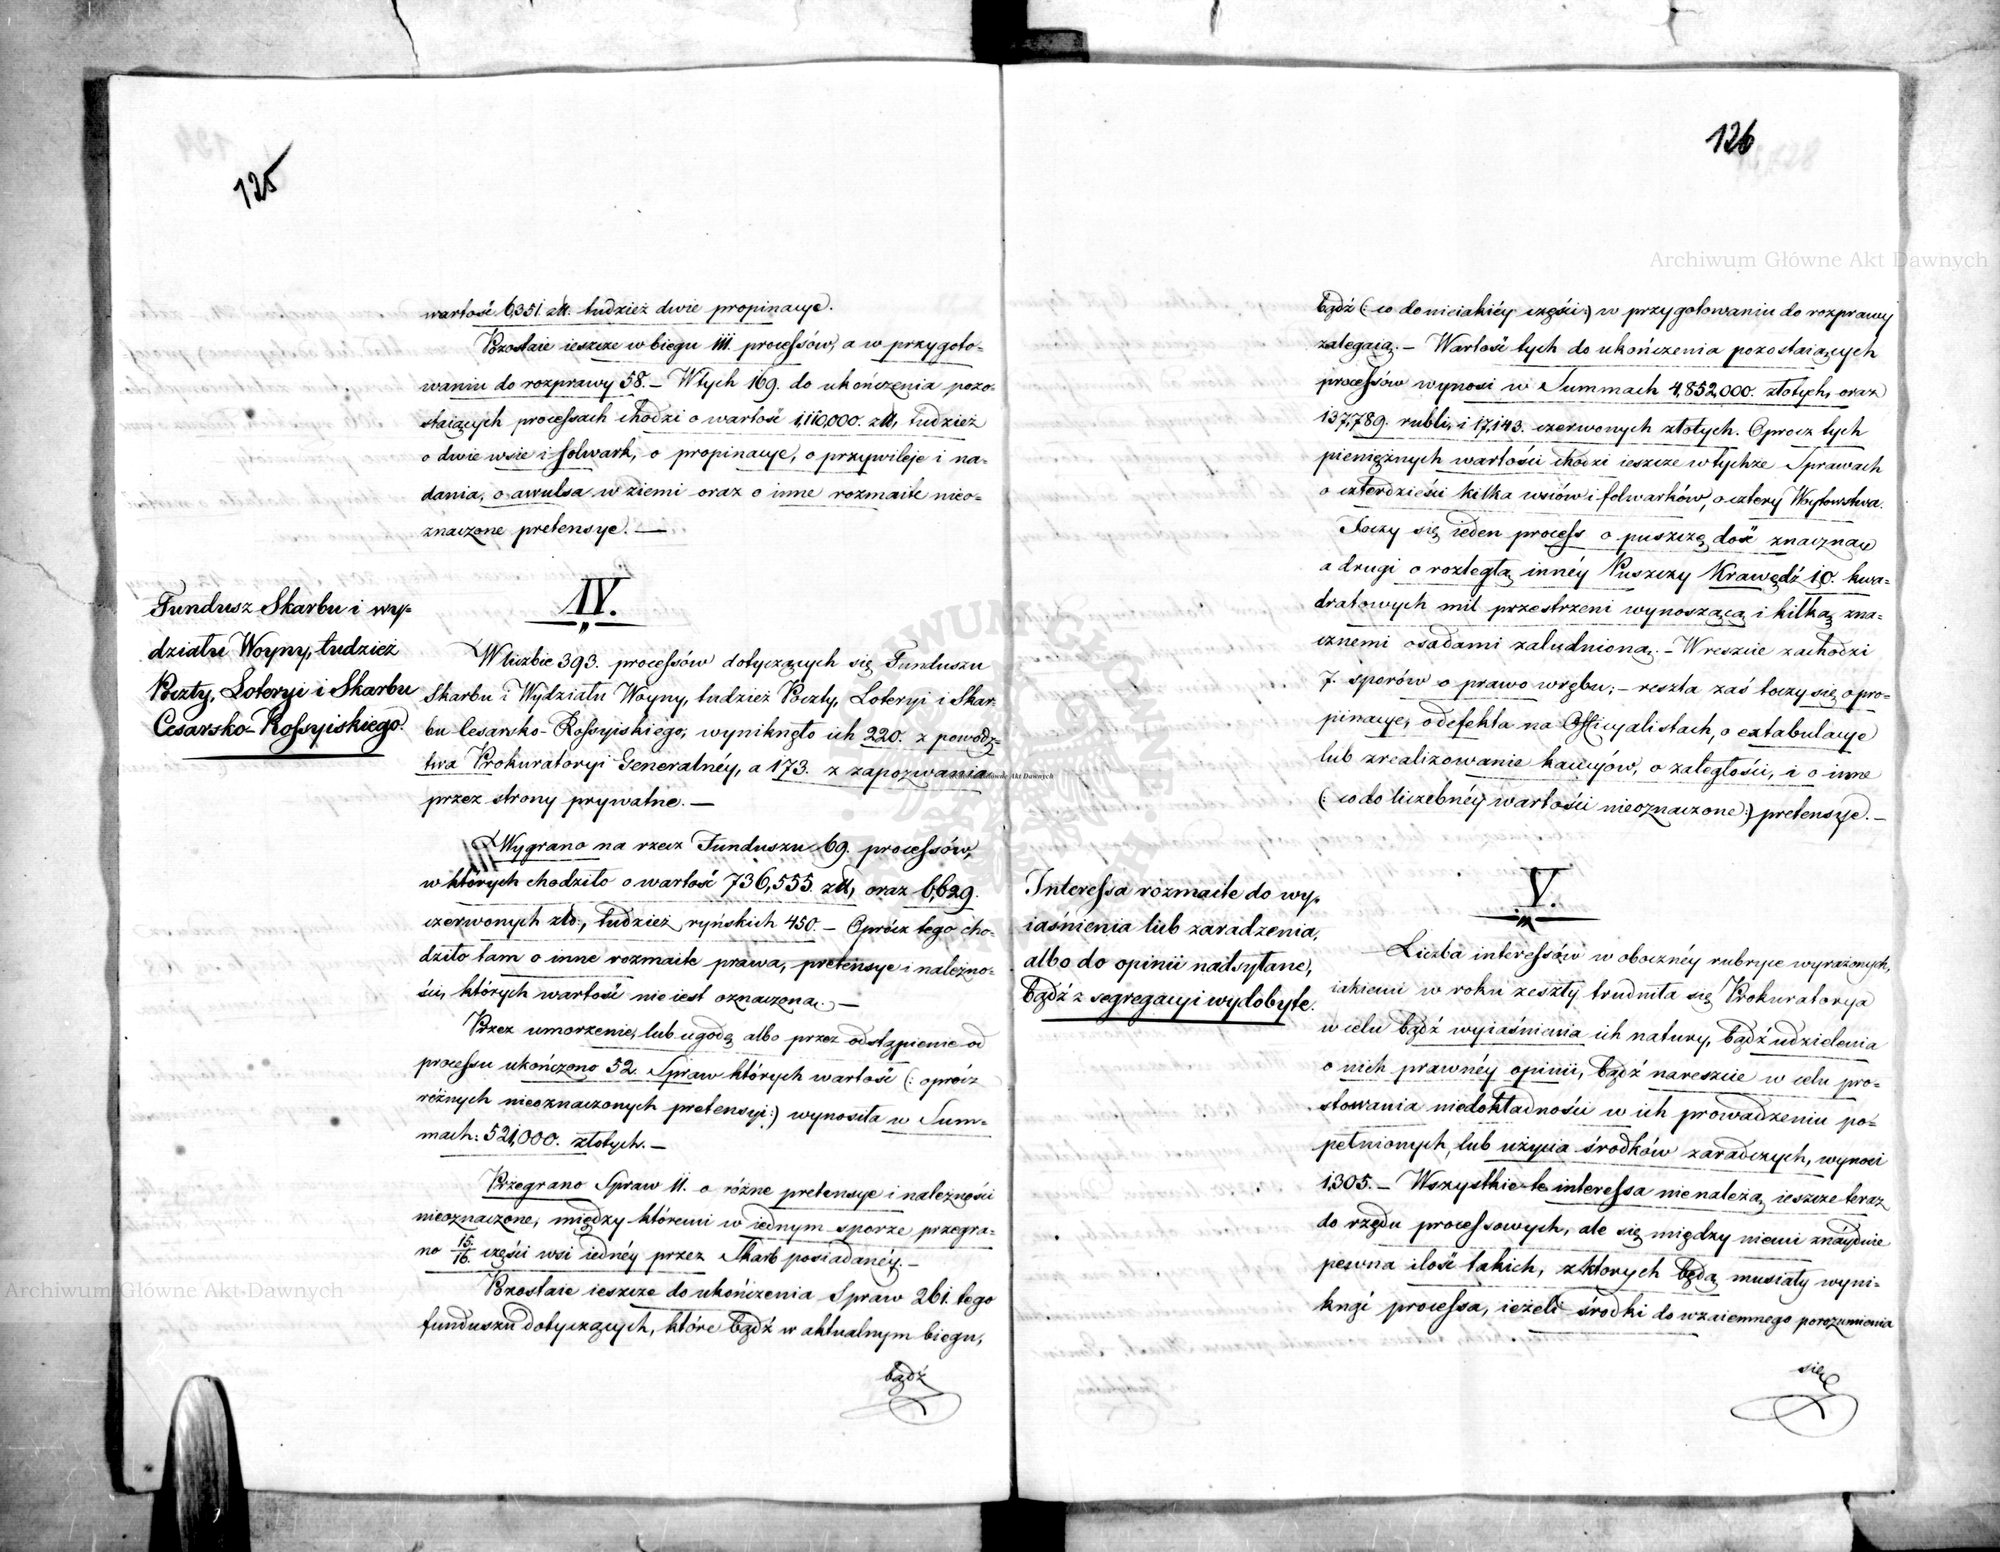 125
wartość 6,351. złł. tudzież dwie propinacye.
Pozostaie ieszcze w biegu 111. processów, a w przygoto-
waniu do rozprawy 58. — W tych 169. do ukończenia pozo-
staiących processach chodzi o wartość 1,110,000. złł., tudzież
o dwie wsie i folwark, o propinacye, o przywileje i na-
dania, o awulsa w ziemi oraz o inne rozmaite nieo-
znaczone pretensye. —
Fundusz Skarbu i wy-
działu Woyny, tudzież
Poczty, Loteryi i Skarbu
Cesarsko-Rossyiskiego.
IV.
W liczbie 393. processów dotyczących się Funduszu
Skarbu i Wydziału Woyny, tudzież Poczty, Loteryi i Skar-
bu Cesarsko-Rossyiskiego, wyniknęło ich 220. z powodz-
twa Prokuratoryi Generalnéy, a 173. z zapozwania
przez strony prywatne. —
Wygrano na rzecz Funduszu 69. processów,
w których chodziło o wartość 736,555. złł, oraz 6,629.
czerwonych złd., tudzież ryńskich 450. — Oprócz tego cho-
dziło tam o inne rozmaite prawa, pretensye i należno-
ści, których wartość nie iest oznaczoną. —
Przez umorzenie, lub ugodę albo przez odstąpienie od
processu ukończono 52. Spraw których wartość (: oprócz
różnych nieoznaczonych pretensyi:) wynosiła w Sum-
mach: 521,000. złotych. —
Przegrano Spraw 11. o różne pretensye i należności
nieoznaczone, między któremi w iednym sporze przegra-
no 15/16. części wsi iednéy przez Skarb posiadanéy. —
Pozostaie ieszcze do ukończenia Spraw 261. tego
funduszu dotyczących, które bądź w aktualnym biegu,
bądź
126
bądź (: co do nieiakiéy części:) w przygotowaniu do rozprawy
zalegaią. — Wartość tych do ukończenia pozostaiących
processów wynosi w Summach 4,852,000. złotych, oraz
137,789. rubli, i 17,143. czerwonych złotych. Oprocz tych
pieniężnych wartości chodzi ieszcze w tychże Sprawach
o czterdzieści kilka wsiów i folwarków, o cztery Woytowstwa.
Toczy się ieden process o puszczę dość znaczną
a drugi o rozległą innéy Puszczy Krawędź 10. kwa-
dratowych mil przestrzeni wynoszącą i kilką zna-
cznemi osadami zaludnioną. — Wreszcie zachodzi
7. sporów o prawo wrębu; — reszta zaś toczy się o pro-
pinacye, o defekta na Officyalistach, o extabulacye
lub zrealizowanie kaucyów, o zaległości, i o inne
(: co do liczebnéy wartości nieoznaczone:) pretensye. —
Interessa rozmaite do wy-
iaśnienia lub zaradzenia,
albo do opinii nadsyłane,
bądź z segregacyi wydobyte.
V.
Liczba interessów w obocznéy rubryce wyrażonych,
iakiemi w roku zeszły trudniła się Prokuratorya
w celu bądź wyiaśnienia ich natury, bądź udzielenia
o nich prawnéy opinii, bądź nareszcie w celu pro-
stowania niedokładności w ich prowadzeniu po-
pełnionych, lub użycia środków zaradczych, wynosi
1,305. — Wszystkie te interessa nie należą ieszcze teraz
do rzędu processowych, ale się między niemi znayduie
pewna ilość takich, z ktorych będą musiały wyni-
knąć processa, ieżeli środki do wzaiemnego porozumienia
się
Archiwum Główne Akt Dawnych
Archiwum Główne Akt Dawnych